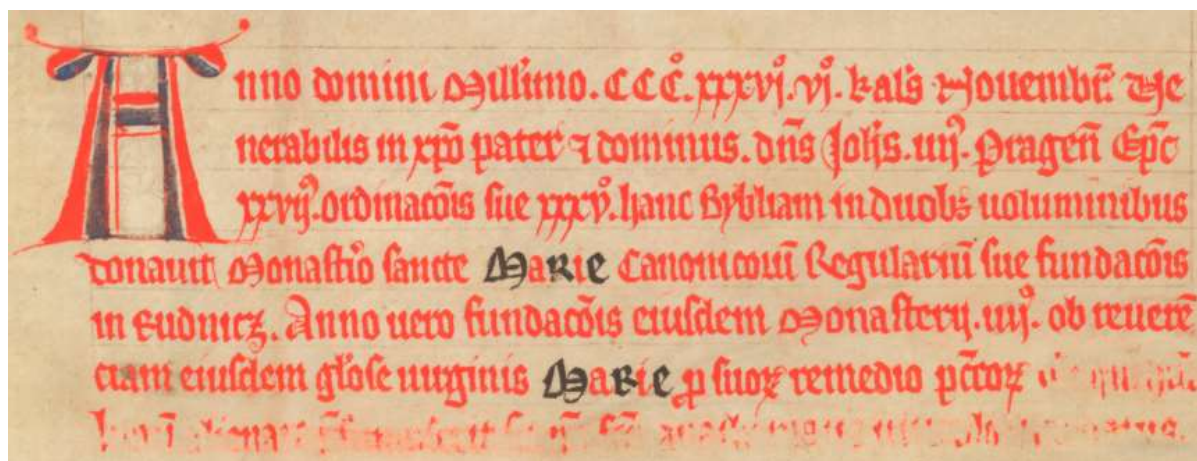 Anno domini Millimo. CCC͡o. xxxvjo. vjo. kal's Nouembr̄. Ve
nerabilis in xp̄o pater ⁊ dominus. dn̄s Joh̄s. iiijꝰ. Pragen̄ Ep̄c
xxvijꝰ. ordinac̄o̅is sue xxxvo. hanc Bybliam in duob; uoluminibus
donauit Monast'io sancte Marie Canonicoꝝ Regulariū sue fundac̄o̅is
in Rudnicz. Anno uero fundac̄o̅is eiusdem Monasterij. iiijo. ob reuerē
ciam eiusdem gl'ose uirginis Marie ꝓ suoꝝ remedio pc̄c̄oꝝ